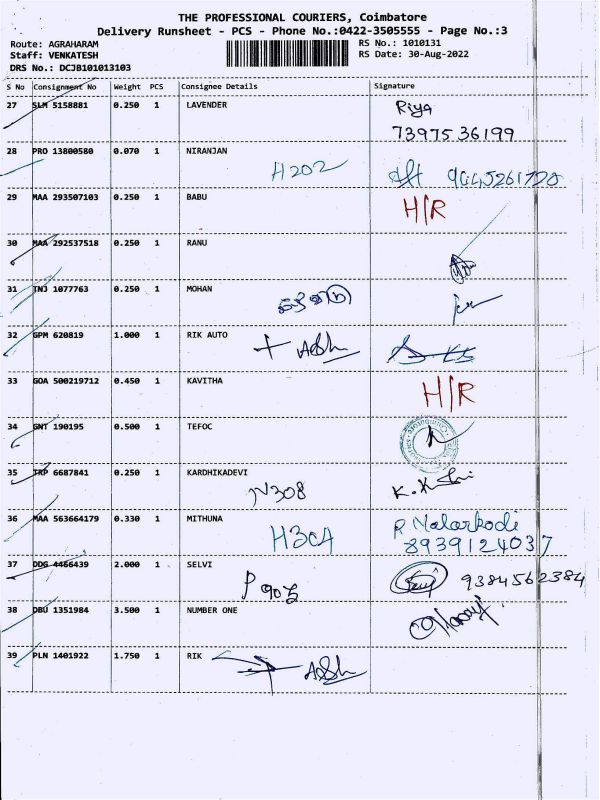 THE PROFESSIONAL COURIERS, Coimbatore
Delivery Runsheet - PCS - Phone No.:0422-3505555 - Page No.:3
Route: AGRAHARAM RS No.: 1010131
Staff: VENKATESH RS Date: 30-Aug-2022
DRS No.: DCJB101013103
S No Consignment No Weight PCS Consignee Details Signature
27 SLM 5158881 0.250 1 LAVENDER Riya
73975 36199
28 PRO 13800580 0.070 1 NIRANJAN
H202
29 MAA 293507103 0.250 1 BABU H/R
30 MAA 292537518 0.250 1 RANU
31 TNJ 1077763 0.250 1 MOHAN
32 GPM 620819 1.000 1 RIK AUTO
33 GOA 500219712 0.450 1 KAVITHA H/R
34 GNT 190195 0.500 1 TEFOC
35 TRP 6687841 0.250 1 KARDHIKADEVI
N308
36 MAA 563664179 0.330 1 MITHUNA R Malarkodi
H3CA 8939124037
37 DDG 4466439 2.000 1 SELVI 9384562384
38 DBU 1351984 3.500 1 NUMBER ONE
39 PLN 1401922 1.750 1 RIK